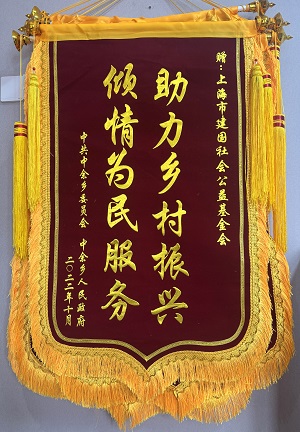 赠：上海市建国社会公益基金会
助力乡村振兴
倾情为民服务
中共中余乡委员会 中余乡人民政府
二〇二二年十月